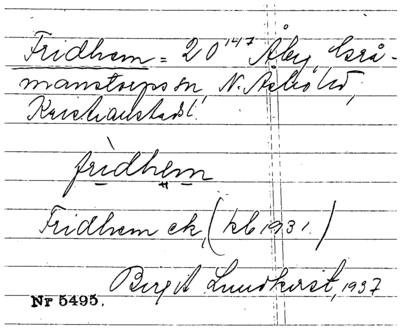 Fridhem = 20¹⁴⁷ Åby, Grå-
manstorps sn, N. Åsbo hd,
Kristianstads l.
frìdhem
Fridhem ek, (kb 1931.)
Birgit Lundkvist, 1937
Nr 5495.